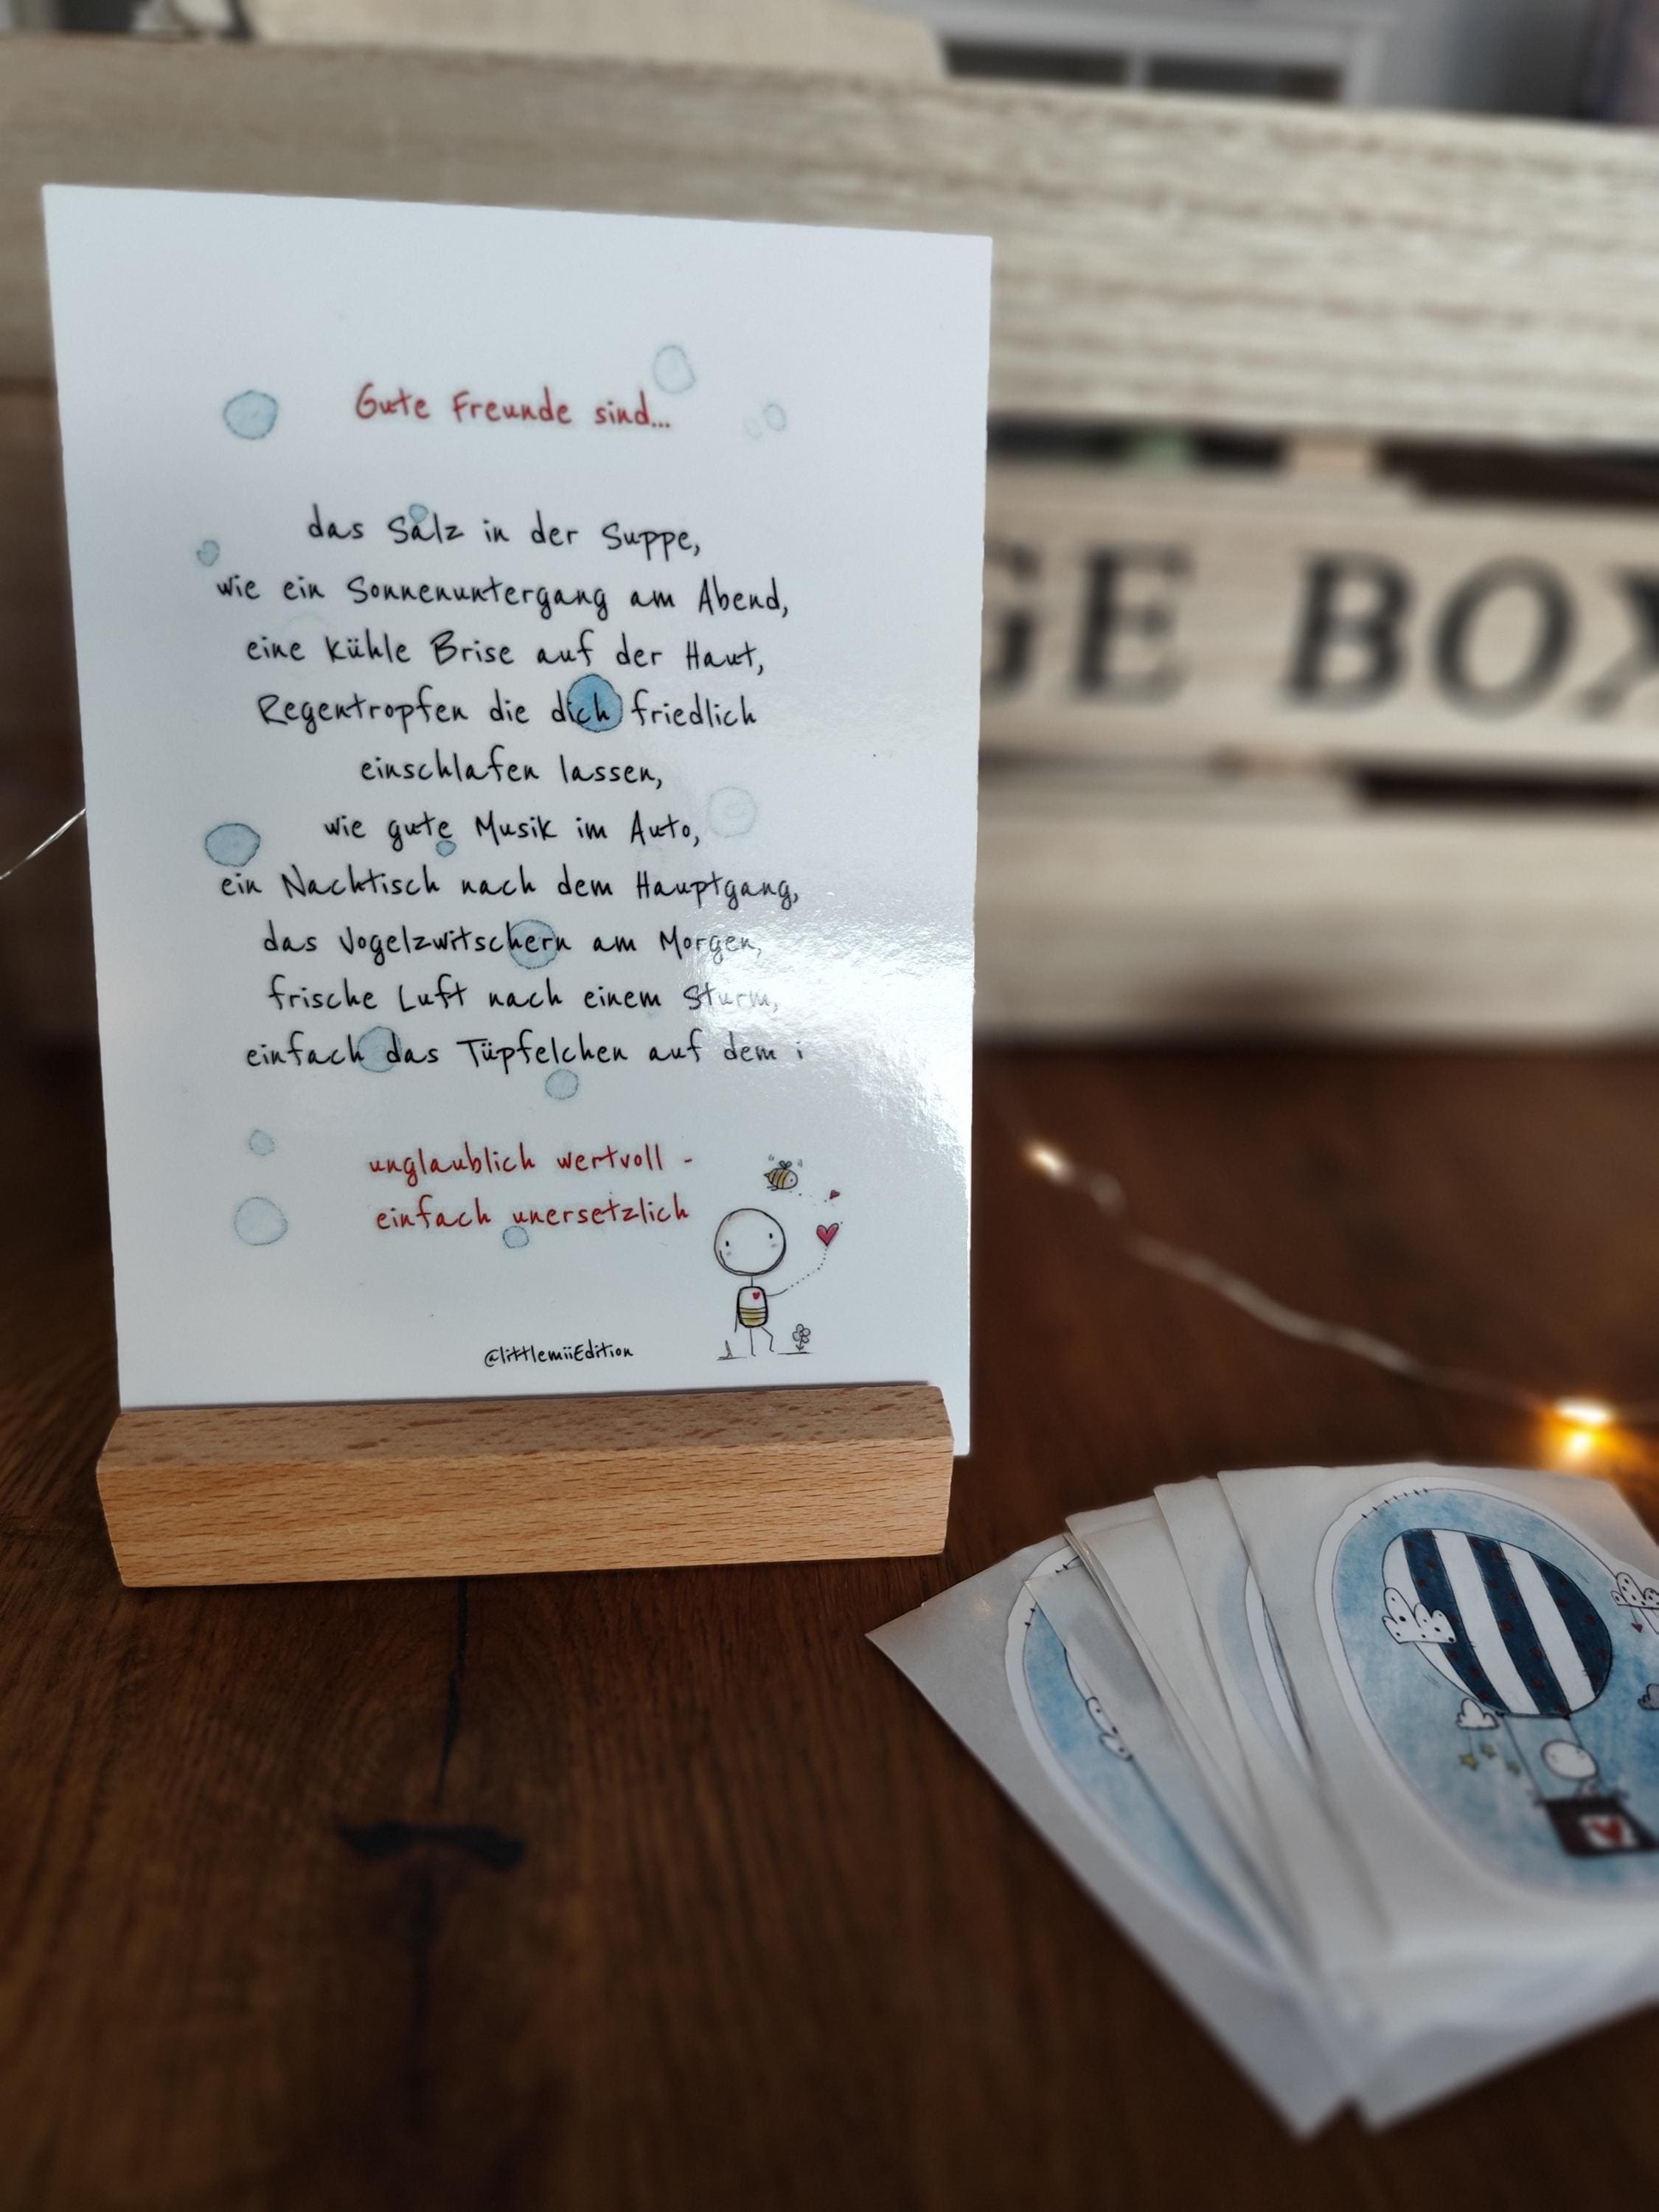 Gute Freunde sind...
das Salz in der Suppe,
wie ein Sonnenuntergang am Abend,
eine kühle Brise auf der Haut,
Regentropfen die dich friedlich
einschlafen lassen,
wie gute Musik im Auto,
ein Nachtisch nach dem Hauptgang,
das Vogelzwitschern am Morgen,
frische Luft nach einem Sturm,
einfach das Tüpfelchen auf dem i
unglaublich wertvoll -
einfach unersetzlich
@littlemiiEdition
GE BOX